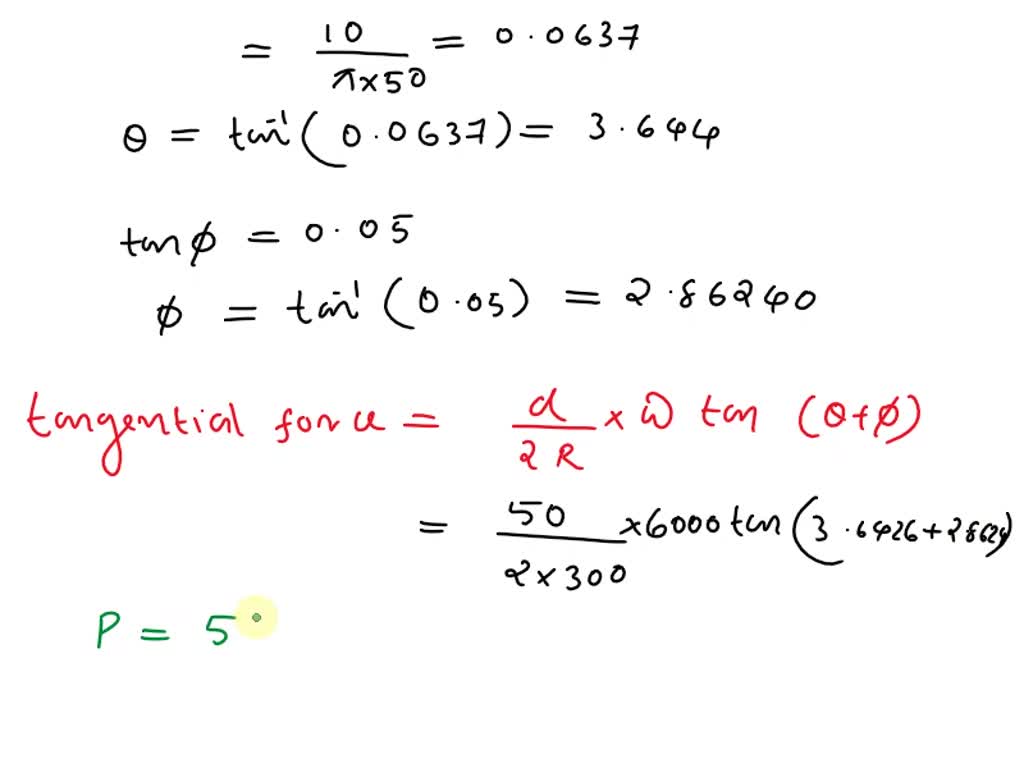 = 10 / π×50 = 0.0637
θ = tan⁻¹(0.0637) = 3.644
tanϕ = 0.05
ϕ = tan⁻¹(0.05) = 2.86240
tangential force = d / 2R × W tan (θ+ϕ)
= 50 / 2×300 ×6000 tan (3.6426+2.8624)
P = 5